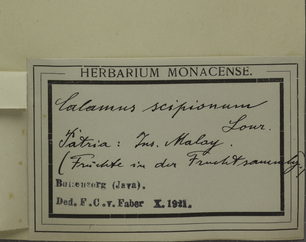 HERBARIUM MONACENSE.
Calamus scipionum
Lour.
Patria: Ins. Malay.
(Früchte in der Fruchtsammlg)
Buitenzorg (Java).
Ded. F. C. v. Faber X. 1921.